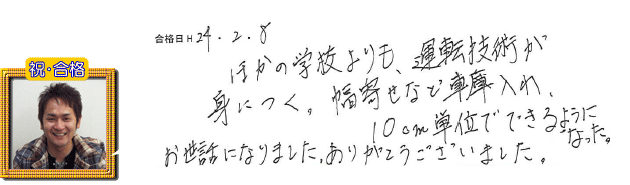 合格日 H 24.2.8
ほかの学校よりも、運転技術が
身につく。幅寄せなど車庫入れ、
10cm単位でできるように
なった。
お世話になりました。ありがとうございました。
祝・合格